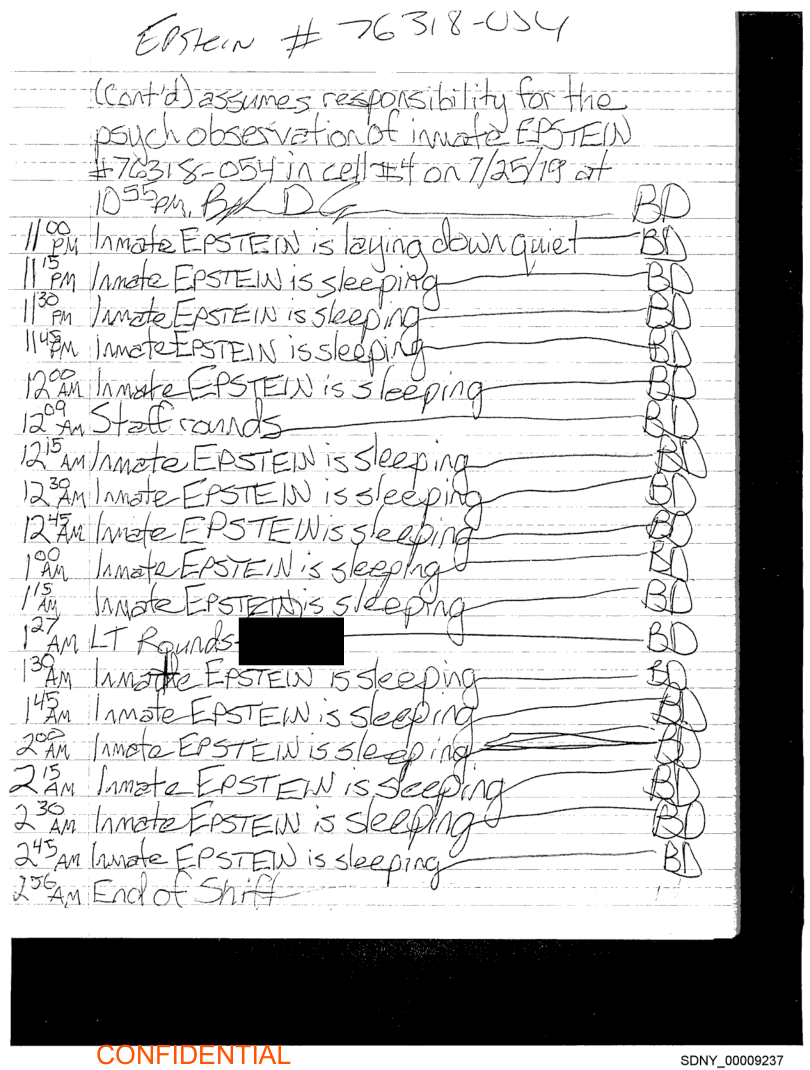 EPStein # 76318-054
(Cont'd) assumes responsibility for the
psych observation of inmate EPSTEIN
#76318-054 in cell #4 on 7/25/19 at
10 55 PM. BD
11 00 PM Inmate EPSTEIN is laying down quiet BD
11 15 PM Inmate EPSTEIN is sleeping BD
11 30 PM Inmate EPSTEIN is sleeping BD
11 45 PM Inmate EPSTEIN is sleeping BD
12 00 AM Inmate EPSTEIN is sleeping BD
12 09 AM Staff rounds BD
12 15 AM Inmate EPSTEIN is sleeping BD
12 30 AM Inmate EPSTEIN is sleeping BD
12 45 AM Inmate EPSTEIN is sleeping BD
1 00 AM Inmate EPSTEIN is sleeping BD
1 15 AM Inmate EPSTEIN is sleeping BD
1 27 AM LT Rounds BD
1 30 AM Inmate EPSTEIN is sleeping BD
1 45 AM Inmate EPSTEIN is sleeping BD
2 00 AM Inmate EPSTEIN is sleeping BD
2 15 AM Inmate EPSTEIN is sleeping BD
2 30 AM Inmate EPSTEIN is sleeping BD
2 45 AM Inmate EPSTEIN is sleeping BD
2 56 AM End of Shift
CONFIDENTIAL
SDNY_00009237